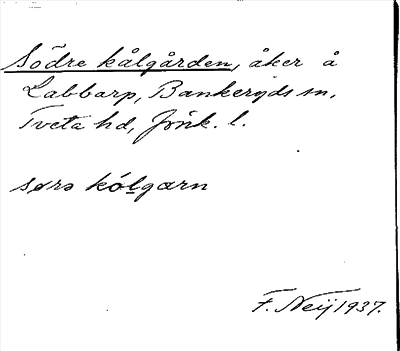 Södre kålgården, åker å
Labbarp, Bankeryds sn,
Tveta hd, Jönk. l.
sørə kólgarn
F. Neij 1937.